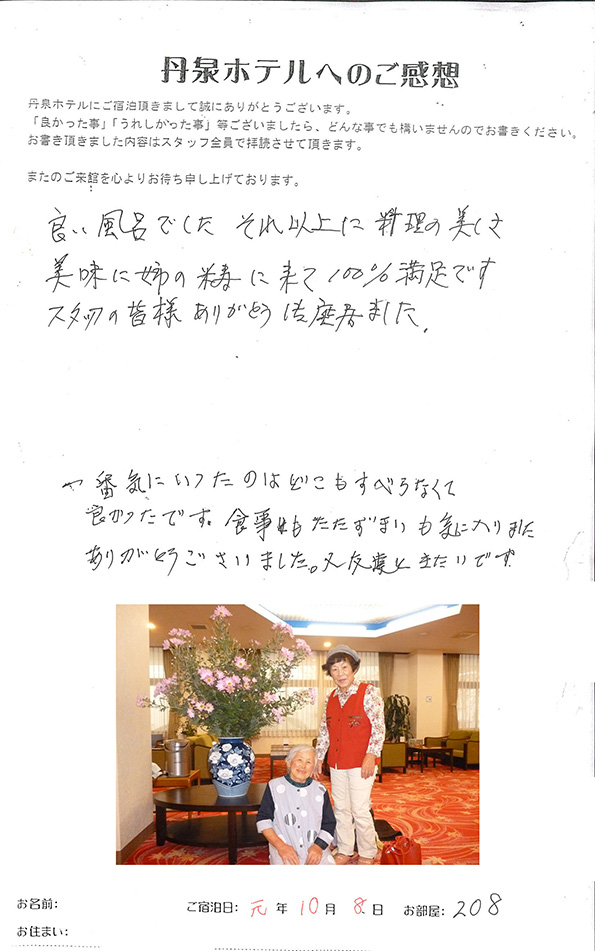 丹泉ホテルへのご感想
丹泉ホテルにご宿泊頂きまして誠にありがとうございます。
「良かった事」「うれしかった事」等ございましたら、どんな事でも構いませんのでお書きください。
お書き頂きました内容はスタッフ全員で拝読させて頂きます。
またのご来館を心よりお待ち申し上げております。
良い風呂でした それ以上に 料理の美しさ
美味に姉の 寿に来て 100%満足です
スタッフの皆様 ありがとう ました。
一番気にいったのはどこもすべらなくて
良かったです。食事もたたずまいも気に入りました
ありがとうございました。又友達と きたいです
お名前: ご宿泊日: 元年10月8日 お部屋: 208
お住まい: